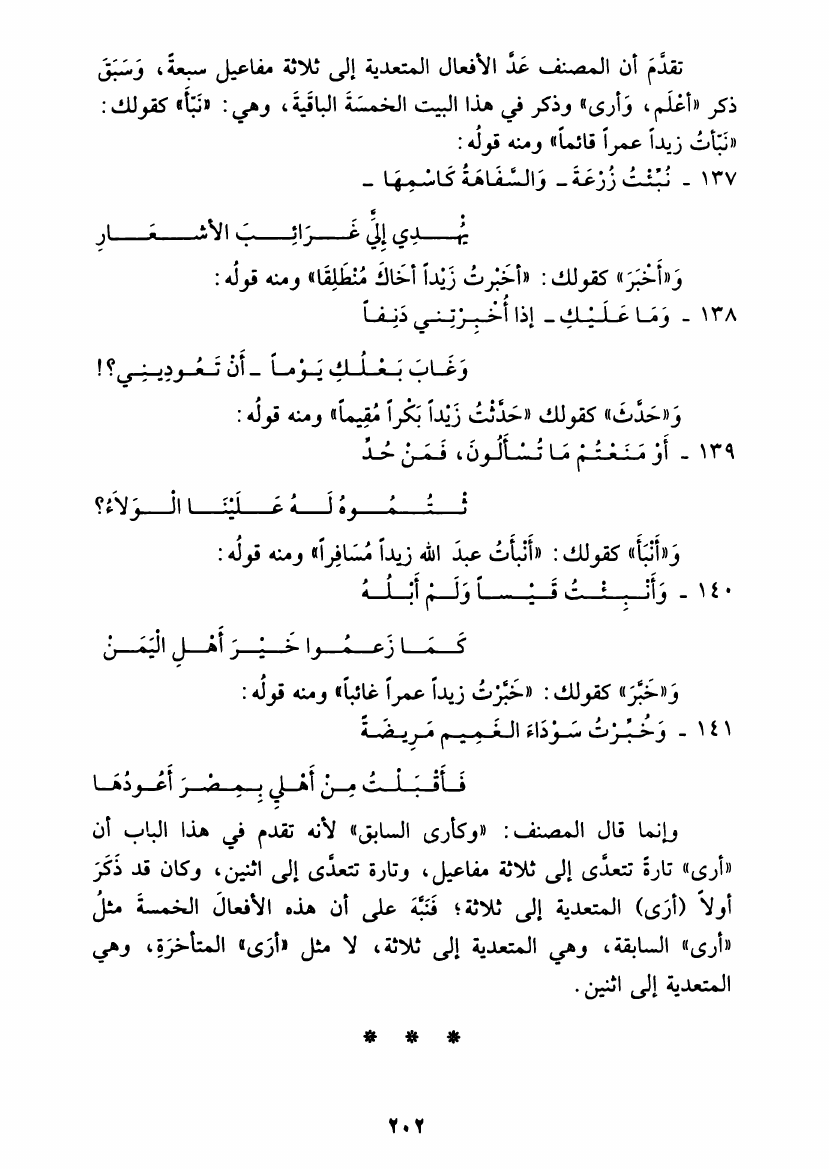 تقدَّمَ أن المصنف عَدَّ الأفعال المتعدية إلى ثلاثة مفاعيل سبعةً، وَسَبَقَ
ذكر «أعْلَم، وَأرى» وذكر في هذا البيت الخمسَةَ الباقيَةَ، وهي: «نَبَّأ» كقولك:
«نَبّأتُ زيداً عمراً قائماً» ومنه قولُه:
١٣٧ - نُبِّئْتُ زُرْعَةَ - وَالسَّفَاهَةُ كَاسْمِهَا -
يُهْدِي إِلَيَّ غَرَائِبَ الأشعَارِ
وَ«أَخْبَرَ» كقولك: «أخَبْرتُ زَيْداً أخَاكَ مُنْطَلِقَا» ومنه قولُه:
١٣٨ - وَمَا عَلَيْكِ - إذا أُخْبِرْتِني دَنِفاً
وَغَابَ بَعْلُكِ يَوْماً - أَنْ تَعُودِينِي؟!
وَ«حَدَّثَ» كقولك «حَدَّثْتُ زَيْداً بَكْراً مُقِيماً» ومنه قولُه:
١٣٩ - أَوْ مَنَعْتُمْ مَا تُسْأَلُونَ، فَمَنْ حُدِّ
ثْتُمُوهُ لَهُ عَلَيْنَا الْوَلاَءُ؟
وَ«أَنْبَأَ» كقولك: «أَنْبَأْتُ عبدَ الله زيداً مُسَافِراً» ومنه قولُه:
١٤٠ - وَأُنْبِئْتُ قَيْساً وَلَمْ أَبْلُهُ
كَمَا زَعَمُوا خَيْرَ أَهْلِ الْيَمَنْ
وَ«خَبَّرَ» كقولك: «خَبَّرْتُ زيداً عمراً غائباً» ومنه قولُه:
١٤١ - وَخُبِّرْتُ سَوْدَاءَ الغَمِيم مَرِيضَةً
فَأَقْبَلْتُ مِنْ أَهْلِي بِمِصْرَ أَعُودُهَا
وإنما قال المصنف: «وكأرى السابق» لأنه تقدم في هذا الباب أن
«أرى» تارةً تتعدَّى إلى ثلاثة مفاعيل، وتارة تتعدَّى إلى اثنين، وكان قد ذَكَرَ
أولاً (أرَى) المتعدية إلى ثلاثة؛ فَنَبَّهَ على أن هذه الأفعالَ الخمسةَ مثلُ
«أرى» السابقة، وهي المتعدية إلى ثلاثة، لا مثل «أرَى» المتأخرَةِ، وهي
المتعدية إلى اثنين.
* * *
٢٠٢